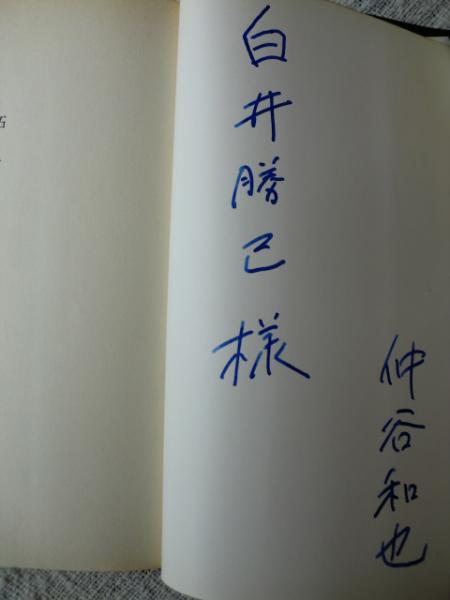 白井勝己様
仲谷和也